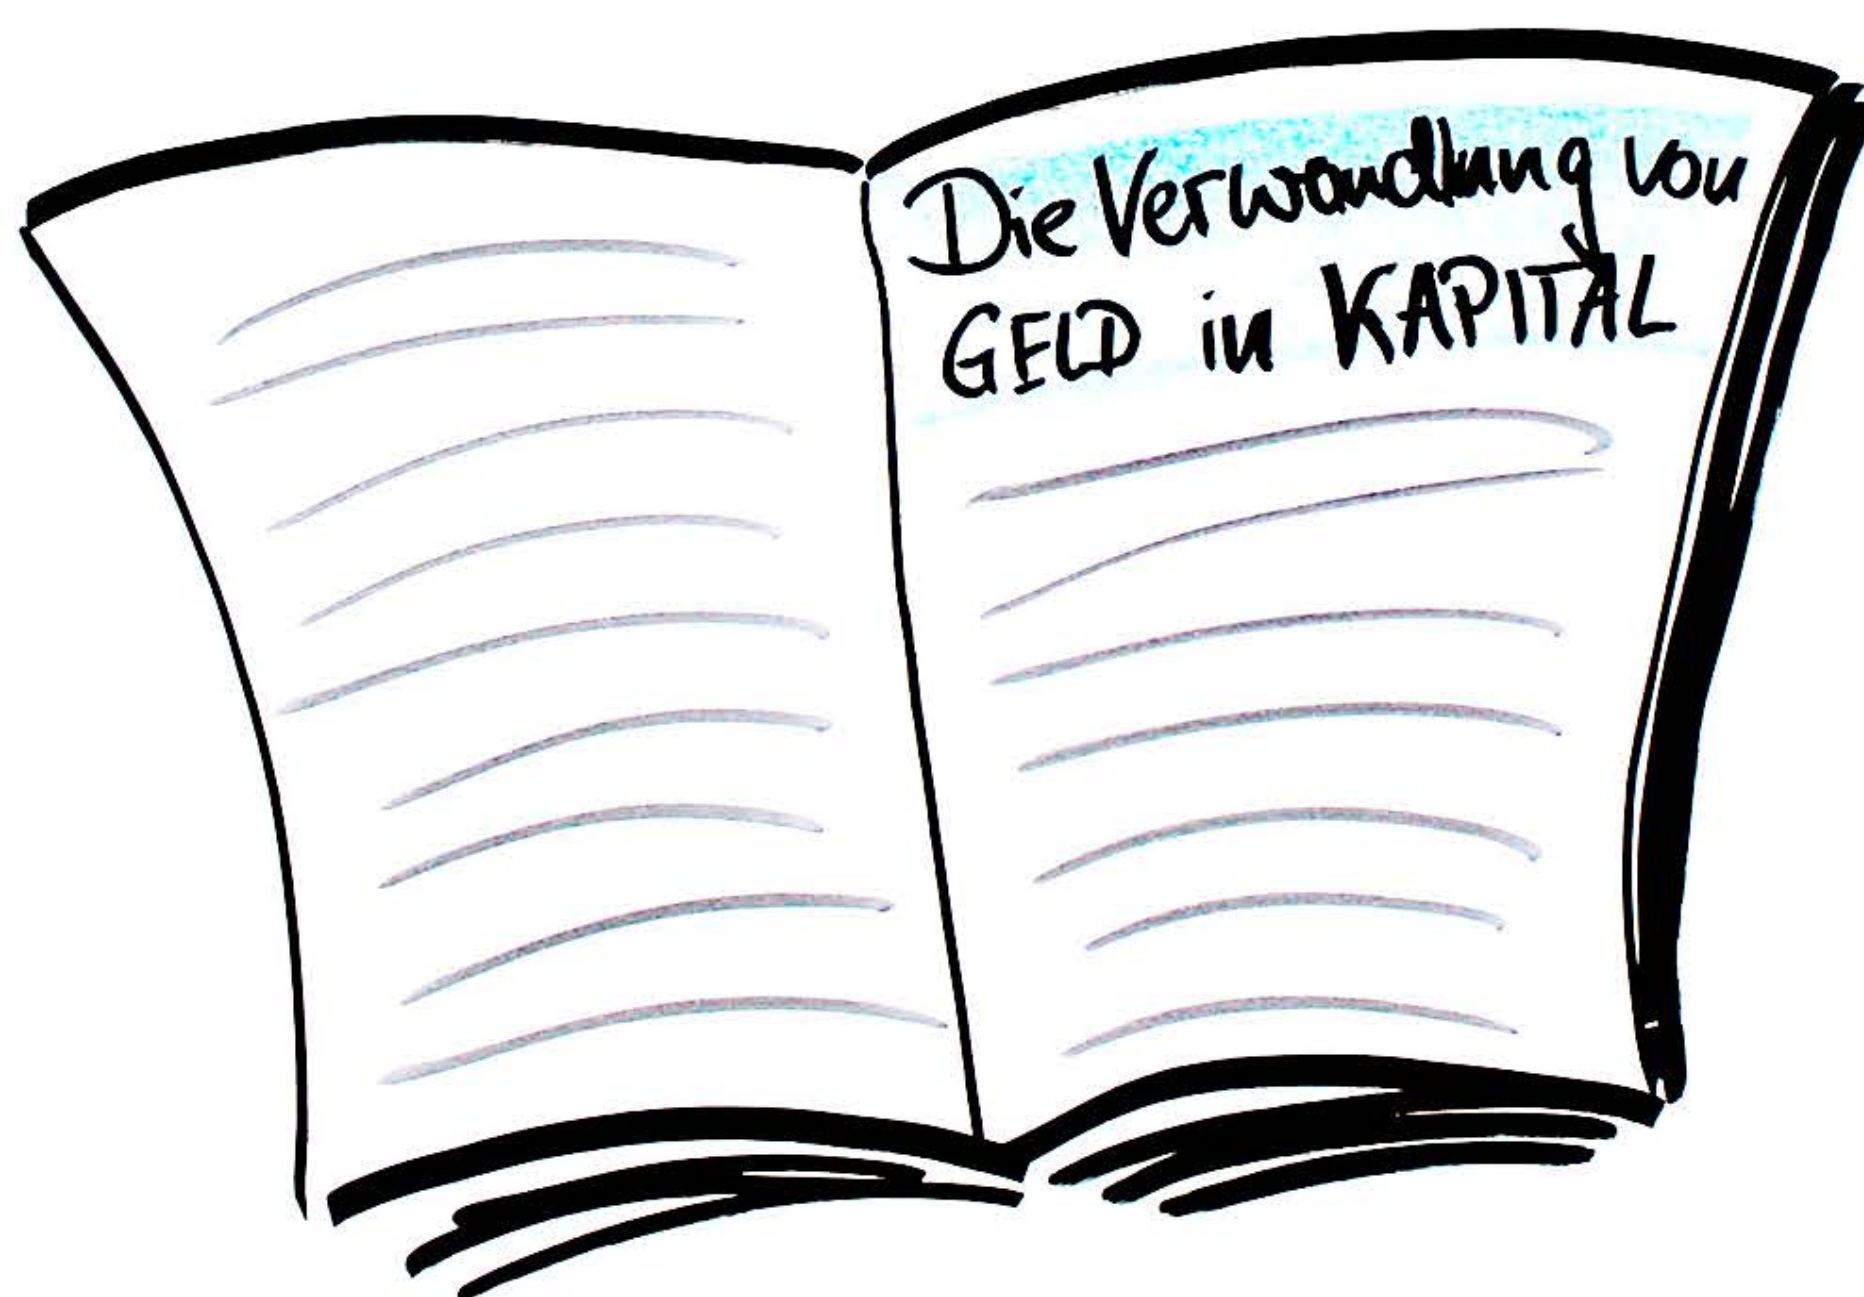 Die Verwandlung von
GELD in KAPITAL